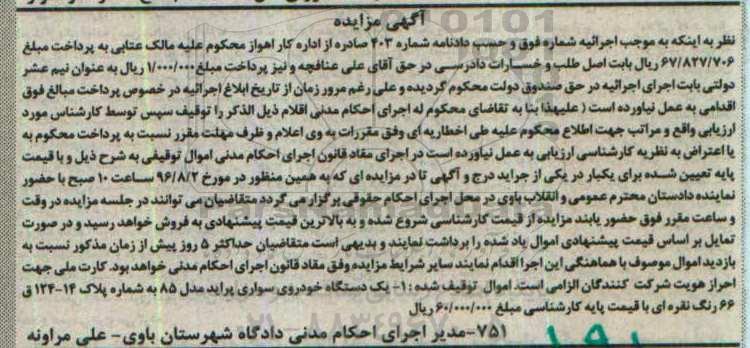 آگهی مزایده
نظر به اینکه به موجب اجرائیه شماره فوق و حسب دادنامه شماره ۴۰۳ صادره از اداره کار اهواز محکوم علیه مالک عتابی به پرداخت مبلغ
۶۷/۸۲۷/۷۰۶ ریال بابت اصل طلب و خسارات دادرسی در حق آقای علی عنافچه و نیز پرداخت مبلغ ۱/۰۰۰/۰۰۰ ریال به عنوان نیم عشر
دولتی بابت اجرای اجرائیه در حق صندوق دولت محکوم گردیده و علی رغم مرور زمان از تاریخ ابلاغ اجرائیه در خصوص پرداخت مبالغ فوق
اقدامی به عمل نیاورده است ( علیهذا بنا به تقاضای محکوم له اجرای احکام مدنی اقلام ذیل الذکر را توقیف سپس توسط کارشناس مورد
ارزیابی واقع و مراتب جهت اطلاع محکوم علیه طی اخطاریه ای وفق مقررات به وی اعلام و ظرف مهلت مقرر نسبت به پرداخت محکوم به
یا اعتراض به نظریه کارشناسی ارزیابی به عمل نیاورده است در اجرای مفاد قانون اجرای احکام مدنی اموال توقیفی به شرح ذیل و با قیمت
پایه تعیین شده برای یکبار در یکی از جراید درج و آگهی تا در مزایده ای که به همین منظور در مورخ ۹۶/۸/۲ ساعت ۱۰ صبح با حضور
نماینده دادستان محترم عمومی و انقلاب باوی در محل اجرای احکام حقوقی برگزار می گردد متقاضیان می توانند در جلسه مزایده در وقت
و ساعت مقرر فوق حضور یابند مزایده از قیمت کارشناسی شروع شده و به بالاترین قیمت پیشنهادی به فروش خواهد رسید و در صورت
تمایل بر اساس قیمت پیشنهادی اموال یاد شده را برداشت نمایند و بدیهی است متقاضیان حداکثر ۵ روز پیش از زمان مذکور نسبت به
بازدید اموال موصوف با هماهنگی این اجرا اقدام نمایند سایر شرایط مزایده وفق مفاد قانون اجرای احکام مدنی خواهد بود. کارت ملی جهت
احراز هویت شرکت کنندگان الزامی است. اموال توقیف شده : ۱- یک دستگاه خودروی سواری پراید مدل ۸۵ به شماره پلاک ۱۴-۱۲۴ ق
۶۶ رنگ نقره ای با قیمت پایه کارشناسی مبلغ ۶۰/۰۰۰/۰۰۰ ریال
۷۵۱- مدیر اجرای احکام مدنی دادگاه شهرستان باوی- علی مراونه